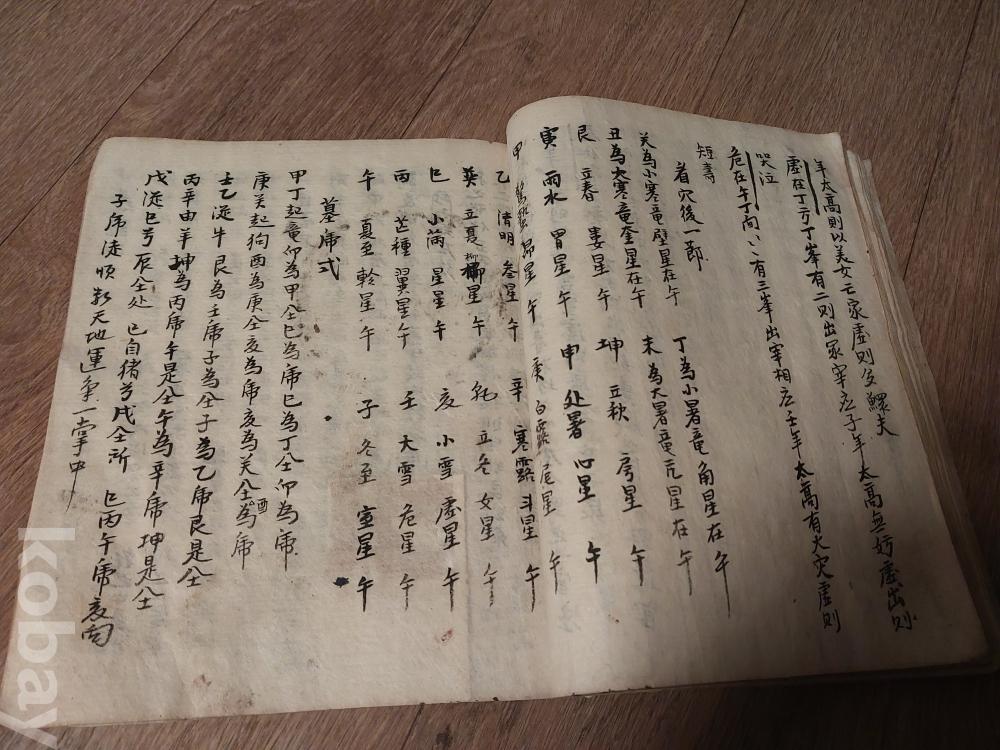 年太高則以美女亡家虛則多鰥夫
虛在丁方丁峯有二則出冢宰庶子年太高無妨虛出則
哭泣
危在午丁間〻有三峯出宰相庶壬年太高有火灾虛則
短壽
看穴後一節 丁為小暑竜角星在午
癸為小寒竜壁星在午 未為大暑竜亢星在午
丑為大寒竜奎星在午 坤 立秋 房星 午
艮 立春 婁星 午 申 处暑 心星 午
寅 雨水 胃星 午 庚 白露 尾星 午
甲 驚蟄 昴星 午 辛 寒露 斗星 午
乙 清明 參星 午 乾 立冬 女星 午
巽 立夏 柳星 午 亥 小雪 虛星 午
巳 小滿 星星 午 壬 大雪 危星 午
丙 芒種 翼星 午 子 冬至 室星 午
午 夏至 軫星 午
墓席式
甲丁起竜仰為甲仝巳為席巳為丁仝仰為席
庚癸起狗酉為庚仝亥為席亥為癸仝酉為席
壬乙從牛艮為壬席子為仝子為乙席艮是仝
丙辛由羊坤為丙席午是仝午為辛席坤是仝
戊從巳兮辰仝处 已自猪兮戌仝所 巳丙午席亥向
子席徒順數天地運氣一掌中
kobay